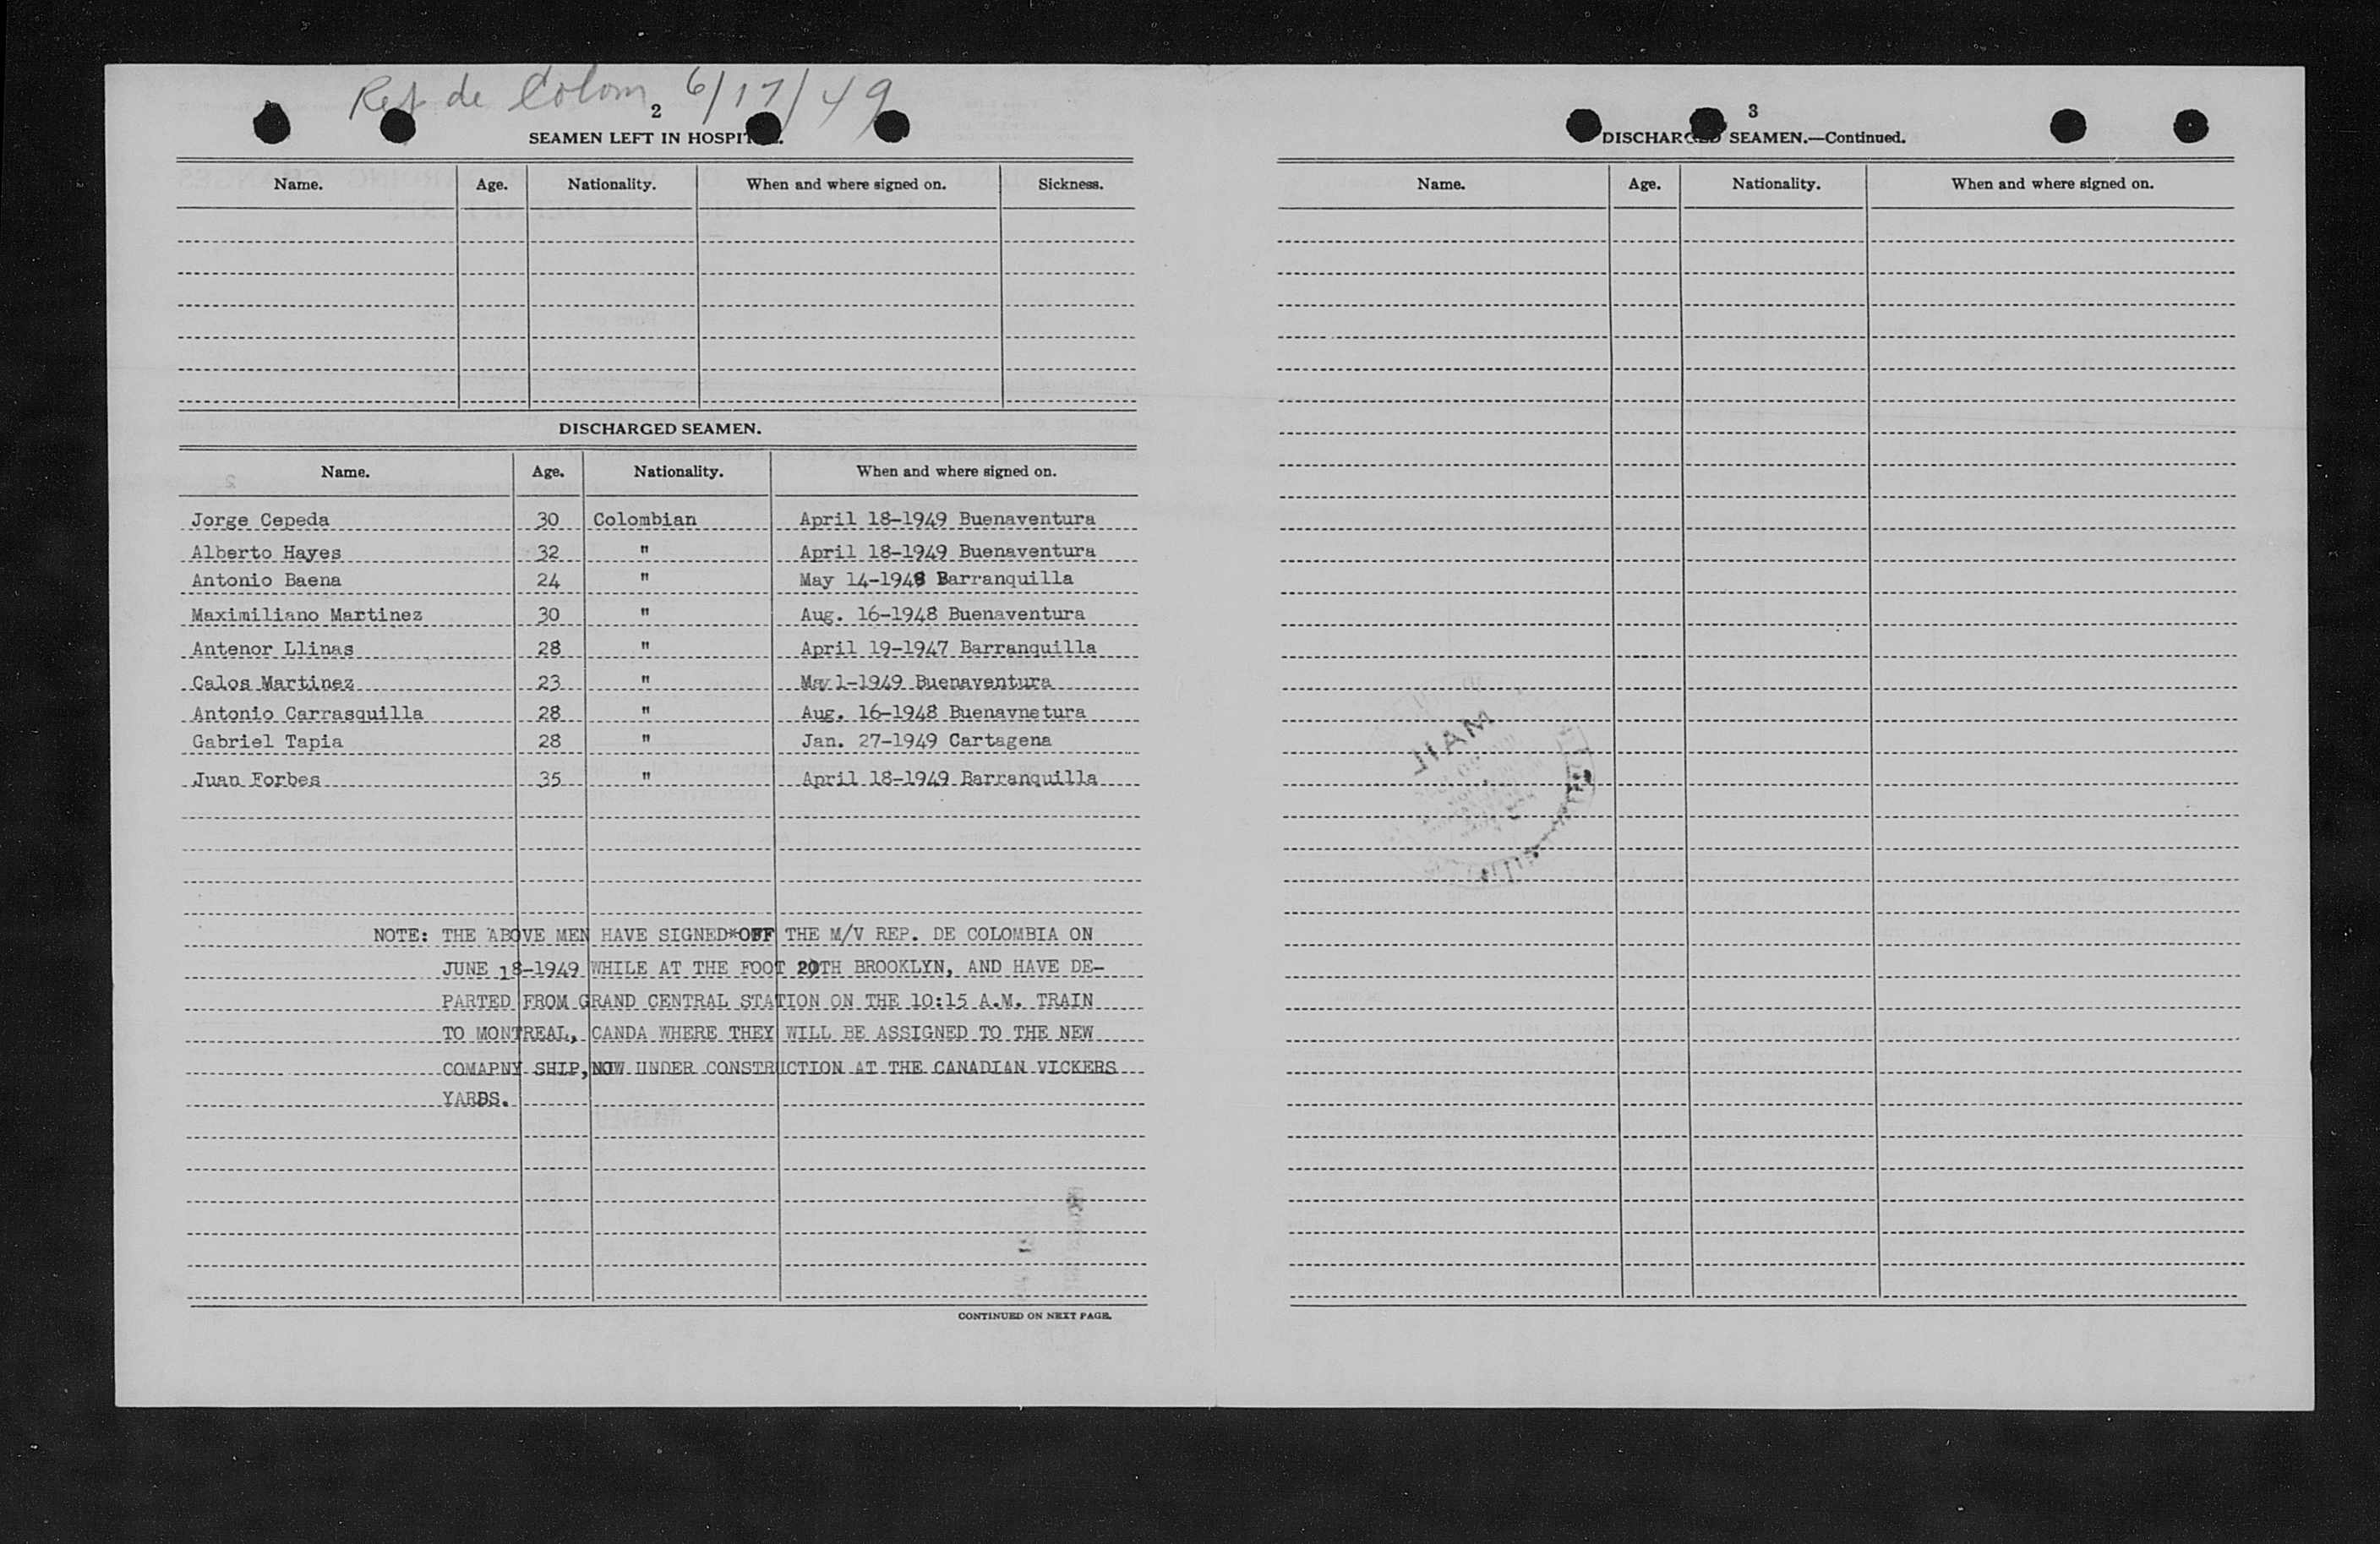 Rep de Colom 6/17/49
2
SEAMEN LEFT IN HOSPITAL.
Name. Age. Nationality. When and where signed on. Sickness.
DISCHARGED SEAMEN.
Name. Age. Nationality. When and where signed on.
Jorge Cepeda 30 Colombian April 18-1949 Buenaventura
Alberto Hayes 32 " April 18-1949 Buenaventura
Antonio Baena 24 " May 14-1948 Barranquilla
Maximiliano Martinez 30 " Aug. 16-1948 Buenaventura
Antenor Llinas 28 " April 19-1947 Barranquilla
Calos Martinez 23 " May 1-1949 Buenaventura
Antonio Carrasquilla 28 " Aug. 16-1948 Buenavnetura
Gabriel Tapia 28 " Jan. 27-1949 Cartagena
Juan Forbes 35 " April 18-1949 Barranquilla
NOTE: THE ABOVE MEN HAVE SIGNED*OFF THE M/V REP. DE COLOMBIA ON
JUNE 18-1949 WHILE AT THE FOOT 20TH BROOKLYN, AND HAVE DE-
PARTED FROM GRAND CENTRAL STATION ON THE 10:15 A.M. TRAIN
TO MONTREAL, CANDA WHERE THEY WILL BE ASSIGNED TO THE NEW
COMAPNY SHIP, NOW UNDER CONSTRUCTION AT THE CANADIAN VICKERS
YARDS.
CONTINUED ON NEXT PAGE.
3
DISCHARGED SEAMEN.—Continued.
Name. Age. Nationality. When and where signed on.
MAIL